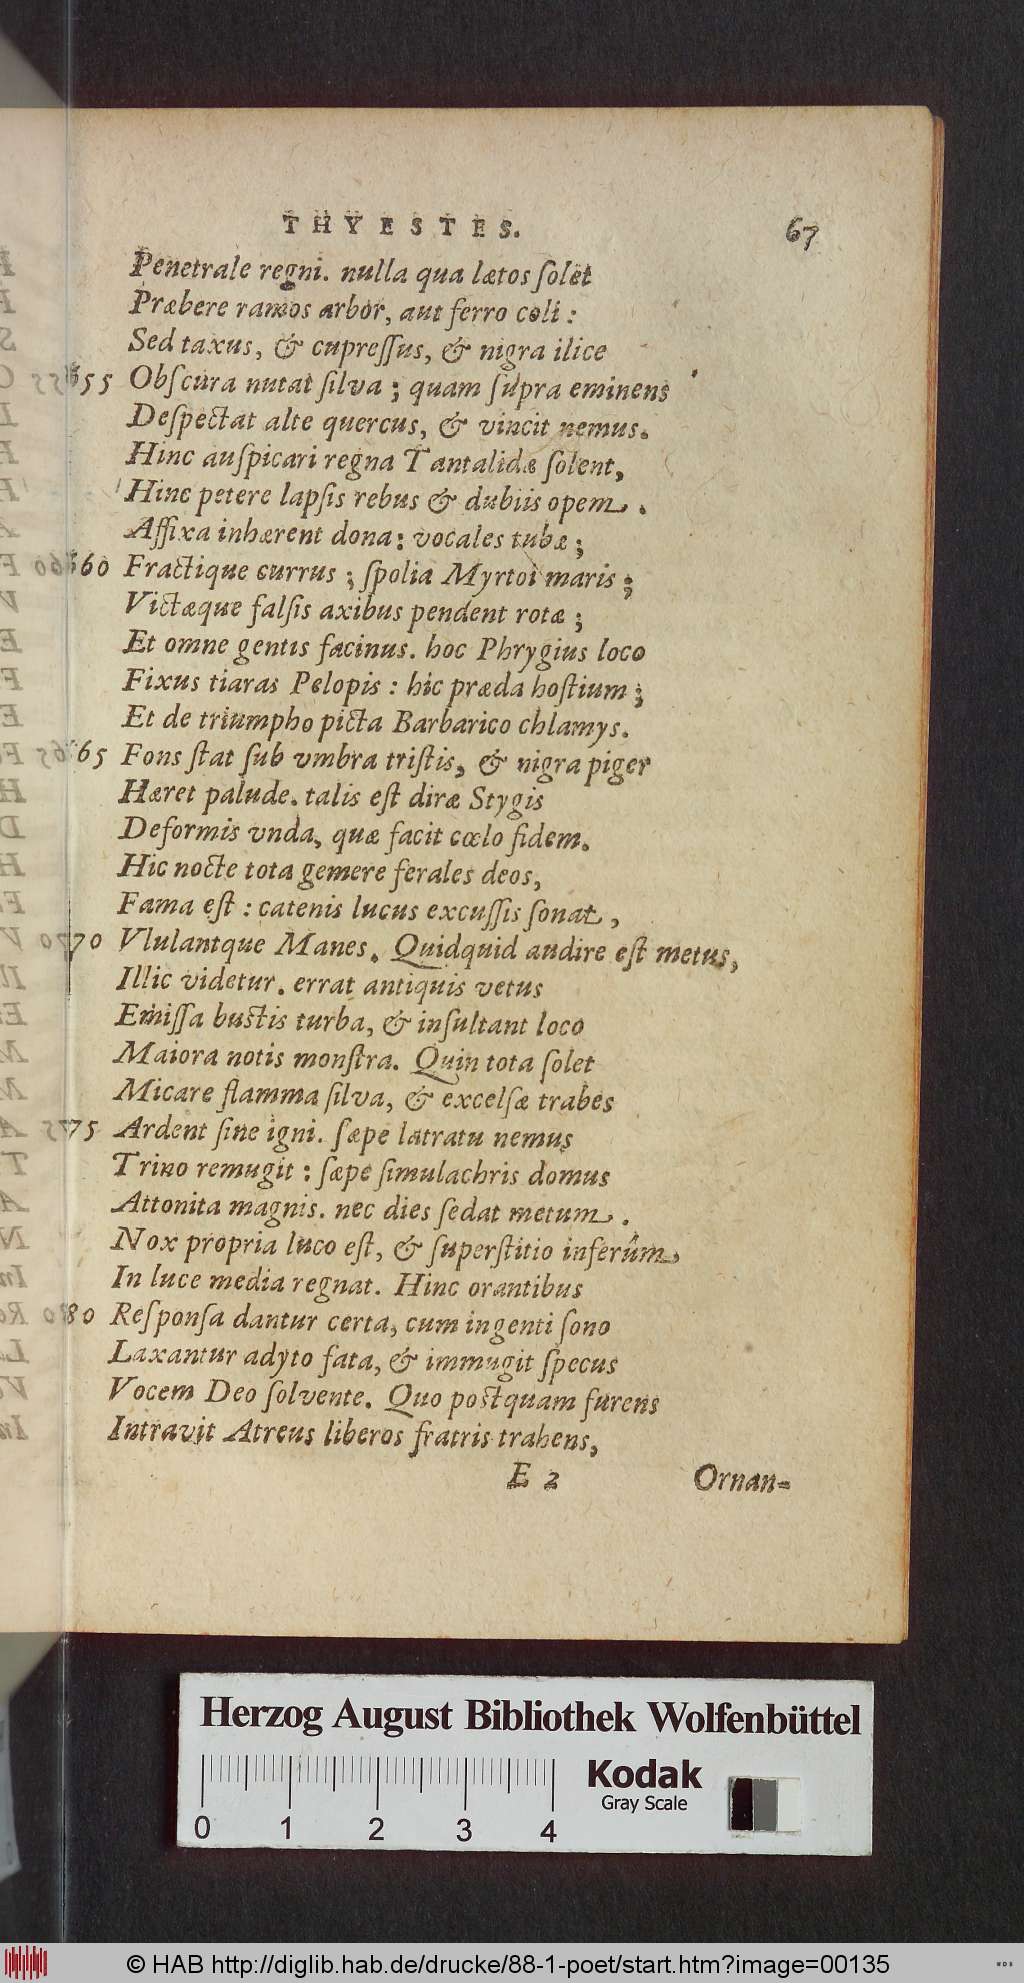 THYESTES. 67
Penetrale regni. nulla qua lætos ſolet
Præbere ramos arbor, aut ferro coli :
Sed taxus, & cupreſſus, & nigra ilice
655 Obſcura nutat ſilva ; quam ſupra eminens
Deſpectat alte quercus, & vincit nemus.
Hinc auſpicari regna Tantalidæ ſolent,
Hinc petere lapſis rebus & dubiis opem.
Affixa inhærent dona: vocales tubæ ;
660 Fractique currus ; ſpolia Myrtoi maris ;
Victæque falſis axibus pendent rotæ ;
Et omne gentis facinus. hoc Phrygius loco
Fixus tiaras Pelopis : hic præda hoſtium ;
Et de triumpho picta Barbarico chlamys.
665 Fons ſtat ſub vmbra triſtis, & nigra piger
Hæret palude. talis eſt diræ Stygis
Deformis vnda, quæ facit cœlo fidem.
Hic nocte tota gemere ferales deos,
Fama eſt : catenis lucus excuſſis ſonat,
70 Vlulantque Manes. Quidquid audire eſt metus,
Illic videtur. errat antiquis vetus
Emiſſa buſtis turba, & inſultant loco
Maiora notis monſtra. Quin tota ſolet
Micare flamma ſilva, & excelſæ trabes
75 Ardent ſine igni. ſæpe latratu nemus
Trino remugit : ſæpe ſimulachris domus
Attonita magnis. nec dies ſedat metum.
Nox propria luco eſt, & ſuperſtitio inferûm
In luce media regnat. Hinc orantibus
80 Reſponſa dantur certa, cum ingenti ſono
Laxantur adyto fata, & immugit ſpecus
Vocem Deo ſolvente. Quo poſtquam furens
Intravit Atreus liberos fratris trahens,
E 2 Ornan-
Herzog August Bibliothek Wolfenbüttel
Kodak
Gray Scale
0 1 2 3 4
© HAB http://diglib.hab.de/drucke/88-1-poet/start.htm?image=00135